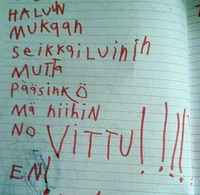 HALUN
MUKAAN
SEiKKAiLUiHiN
MUTTA
PÄÄSiNKÖ
MÄ NiiHiN
NO VITTU!!!!
EN!